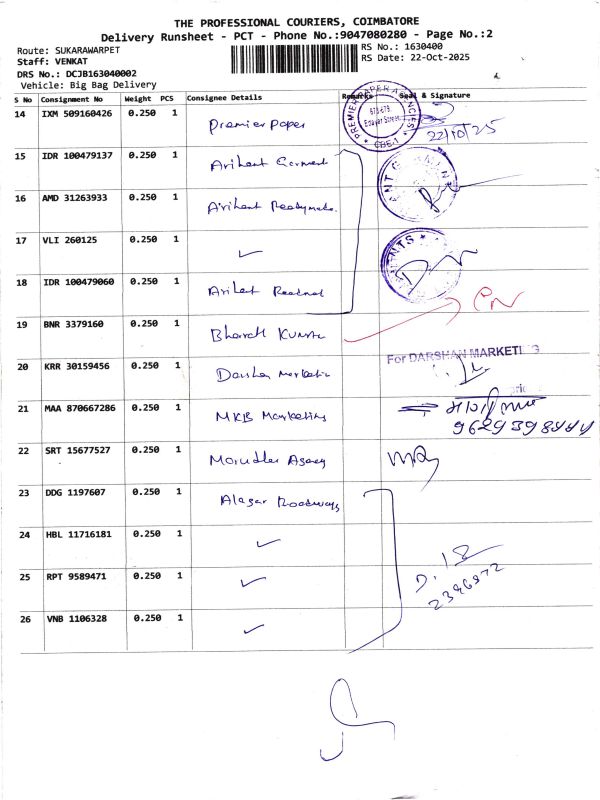 THE PROFESSIONAL COURIERS, COIMBATORE
Delivery Runsheet - PCT - Phone No.:9047080280 - Page No.:2
Route: SUKARAWARPET
RS No.: 1630400
Staff: VENKAT
RS Date: 22-Oct-2025
DRS No.: DCJB163040002
Vehicle: Big Bag Delivery
S No Consignment No Weight PCS Consignee Details Remarks Seal & Signature
14 IXM 509160426 0.250 1 Premier Paper
PREMIER PAPER AGENCIES
CBE-1
22/10/25
15 IDR 100479137 0.250 1 Arihant Garment
16 AMD 31263933 0.250 1 Arihant Readymade
17 VLI 260125 0.250 1 ✓
18 IDR 100479060 0.250 1 Arihant
19 BNR 3379160 0.250 1 Bharath Kumar
20 KRR 30159456 0.250 1 Darshan Marketing
For DARSHAN MARKETING
21 MAA 870667286 0.250 1 MKB Marketing
22 SRT 15677527 0.250 1 Marudhar Agency
23 DDG 1197607 0.250 1 Alagar Roadways
24 HBL 11716181 0.250 1 ✓
25 RPT 9589471 0.250 1 ✓
2396872
26 VNB 1106328 0.250 1 ✓